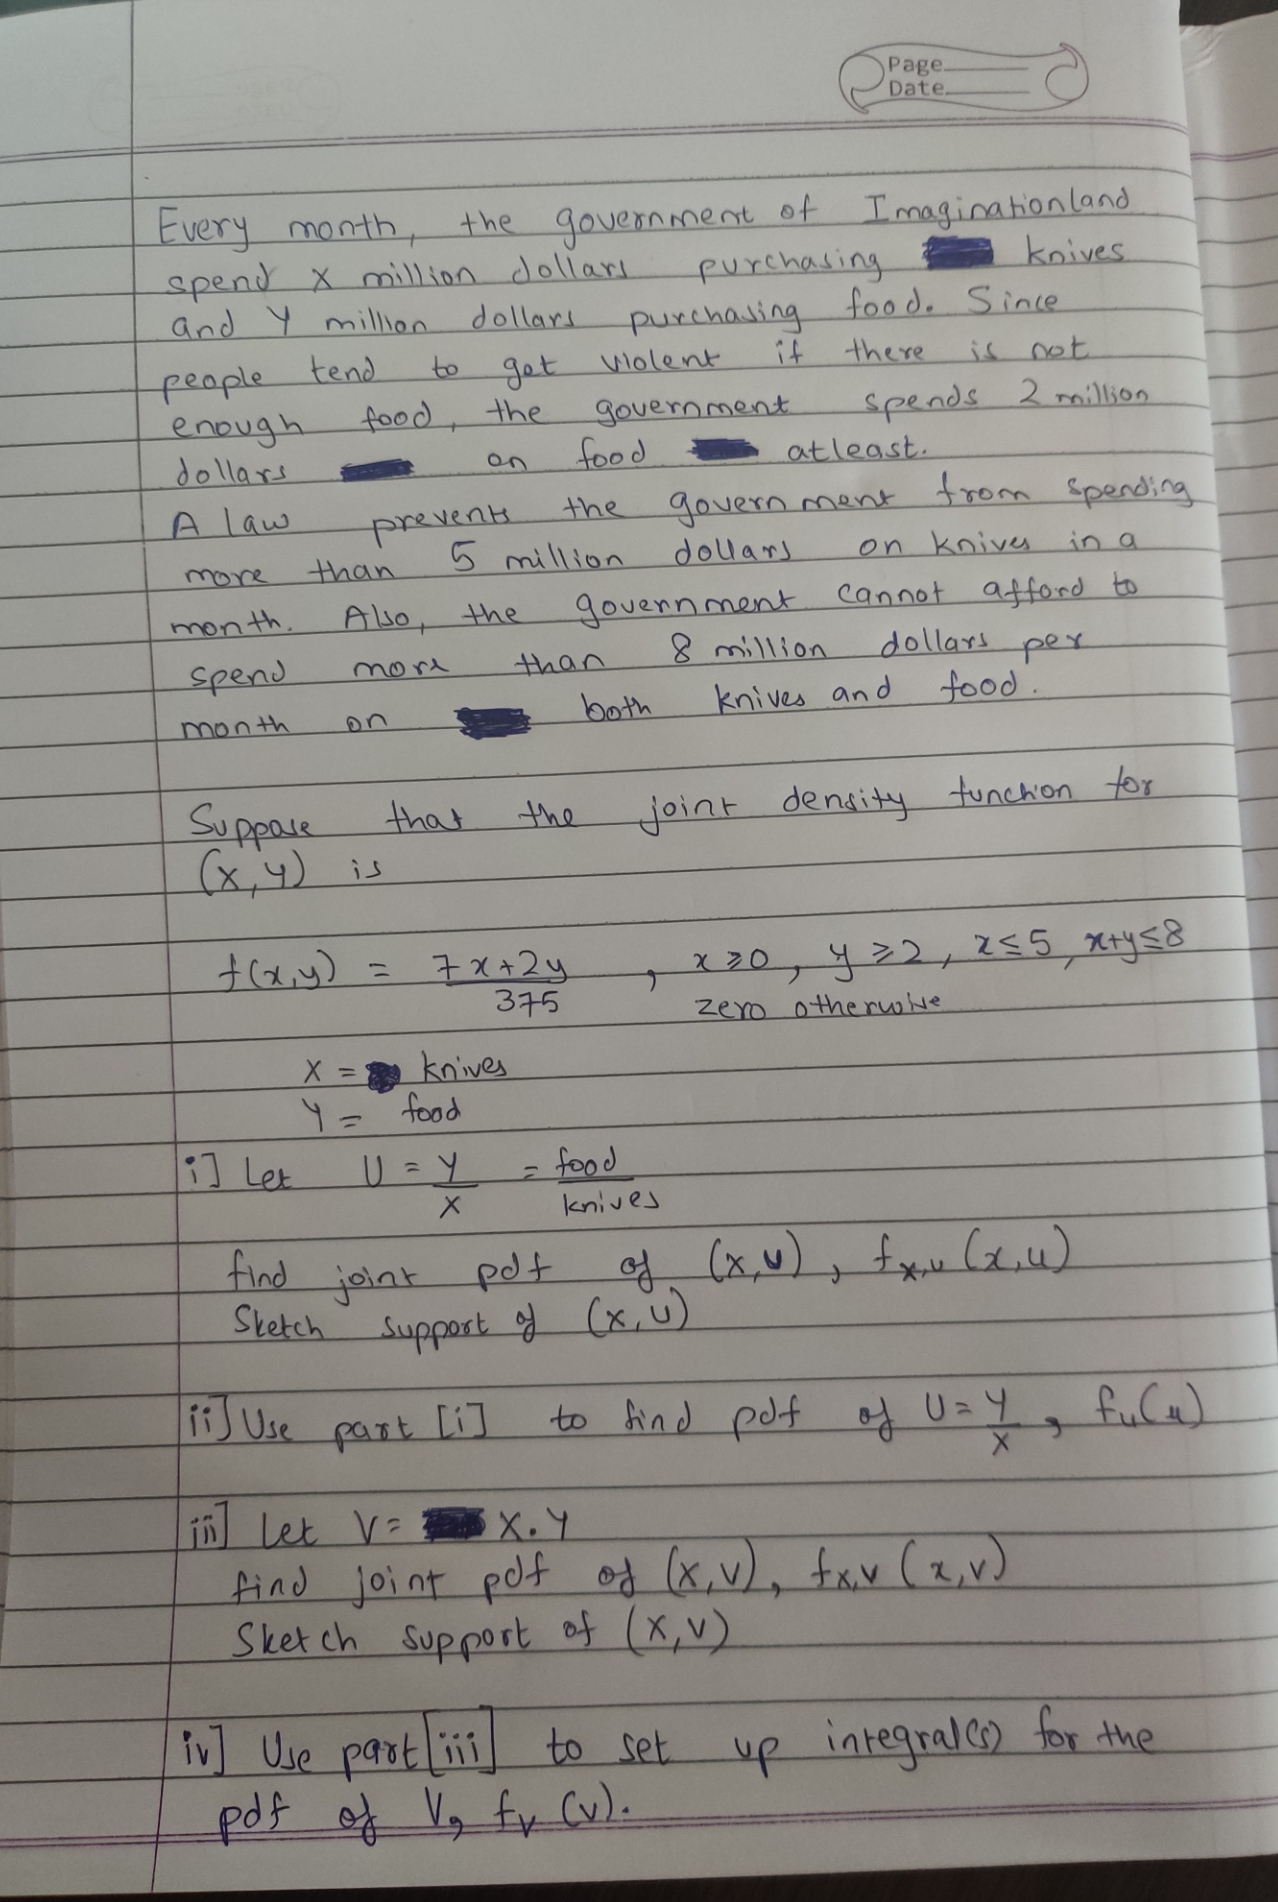 Page
Date
Every month, the government of Imaginationland
spend X million dollars purchasing knives
and Y million dollars purchasing food. Since
people tend to get violent if there is not
enough food, the government spends 2 million
dollars on food atleast.
A law prevents the government from spending
more than 5 million dollars on knives in a
month. Also, the government cannot afford to
spend more than 8 million dollars per
month on both knives and food.
Suppose that the joint density function for
(x,y) is
f(x,y) = 7x+2y / 375 , x ≥ 0, y ≥ 2, x ≤ 5, x+y ≤ 8
zero otherwise
X = knives
Y = food
i] Let U = Y/X = food/knives
find joint pdf of (X,U), fx,u (x,u)
Sketch support of (X,U)
ii] Use part [i] to find pdf of U = Y/X, fu(u)
iii] Let V = X.Y
find joint pdf of (X,V), fx,v (x,v)
Sketch support of (X,V)
iv] Use part [iii] to set up integral(s) for the
pdf of V, fv (v).